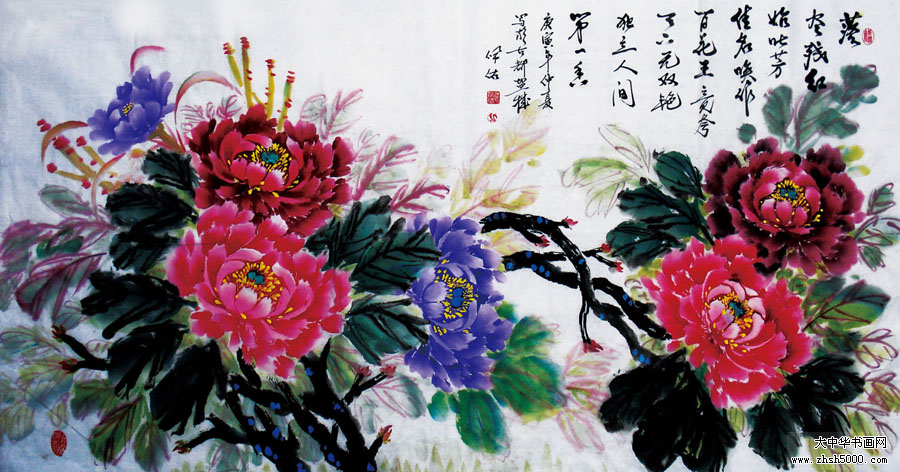 落
尽残红
始吐芳
佳名唤作
百花王竞夸
天下无双艳
独立人间
第一香
庚寅年仲夏
大中华书画网
www.zhsh5000.com